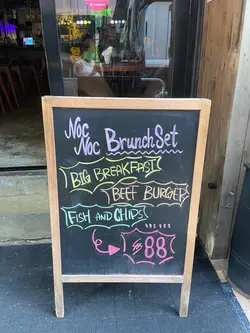 Noc Noc Brunch Set
BIG BREAKFAST
BEEF BURGER
FISH AND CHIPS
$88